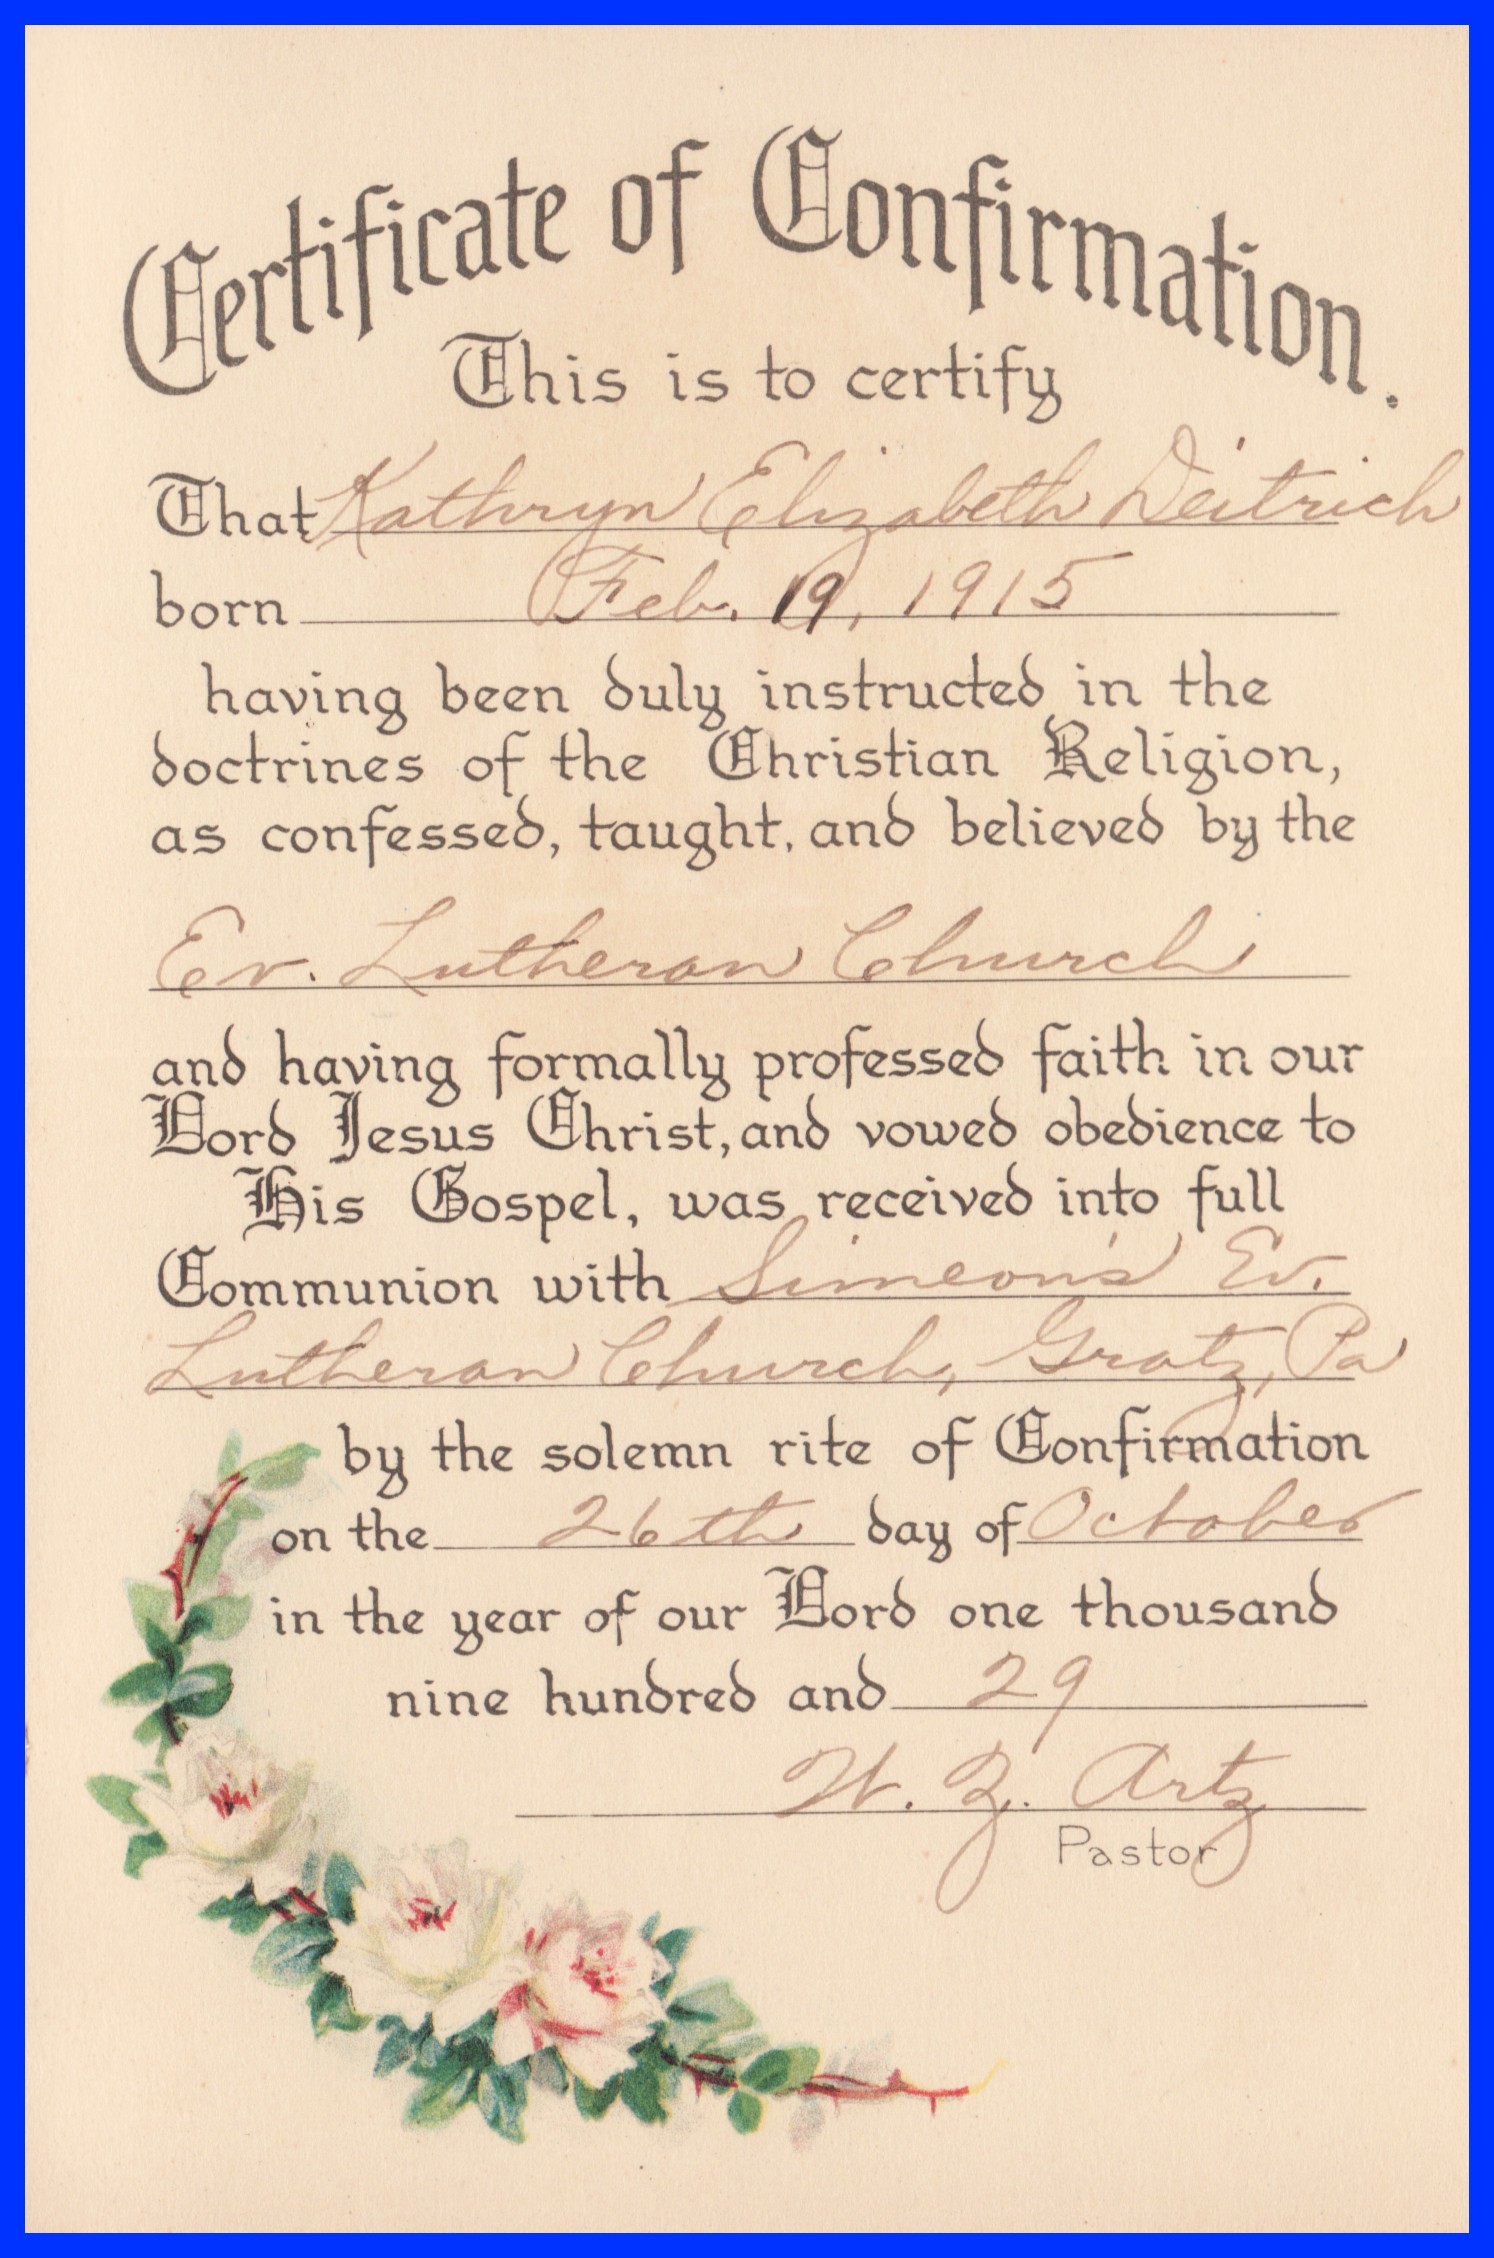 Certificate of Confirmation.
This is to certify
That Kathryn Elizabeth Deitrich
born Feb. 19, 1915
having been duly instructed in the
doctrines of the Christian Religion,
as confessed, taught, and believed by the
Ev. Lutheran Church
and having formally professed faith in our
Lord Jesus Christ, and vowed obedience to
His Gospel, was received into full
Communion with Simeon's Ev.
Lutheran Church, Gratz, Pa
by the solemn rite of Confirmation
on the 26th day of October
in the year of our Lord one thousand
nine hundred and 29
W. Z. Artz
Pastor